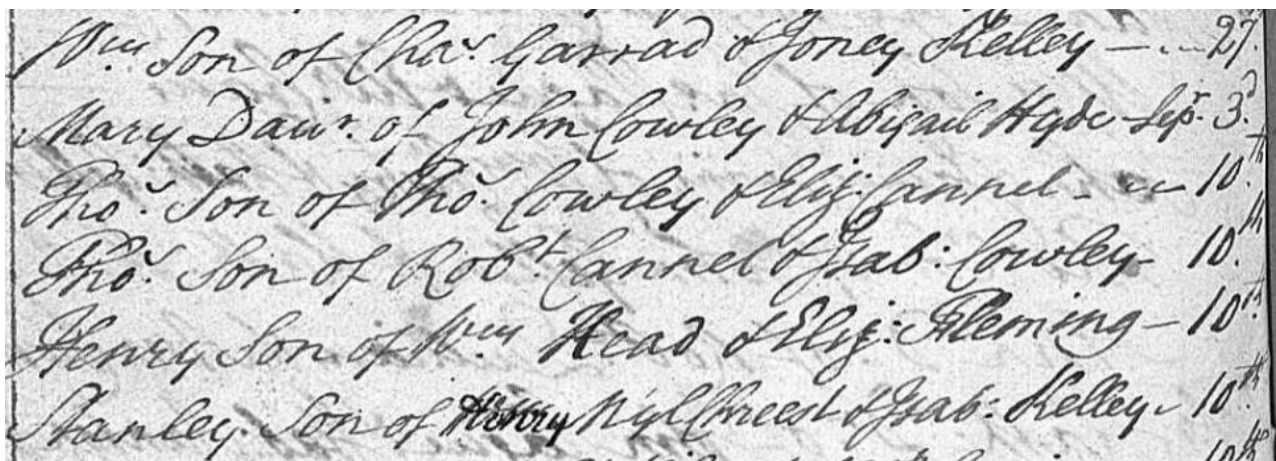 Wm Son of Chas. Garrad & Joney Kelley — 27.
Mary Daur. of John Cowley & Abigail Hyde - Sepr. 3d.
Thos. Son of Thos. Cowley & Eliz: Cannel - 10th.
Thos. Son of Robt. Cannel & Isab: Cowley - 10th.
Henry Son of Wm Head & Eliz: Fleming - 10th.
Stanley Son of Henry Mylchreest & Isab: Kelley - 10th.
10th